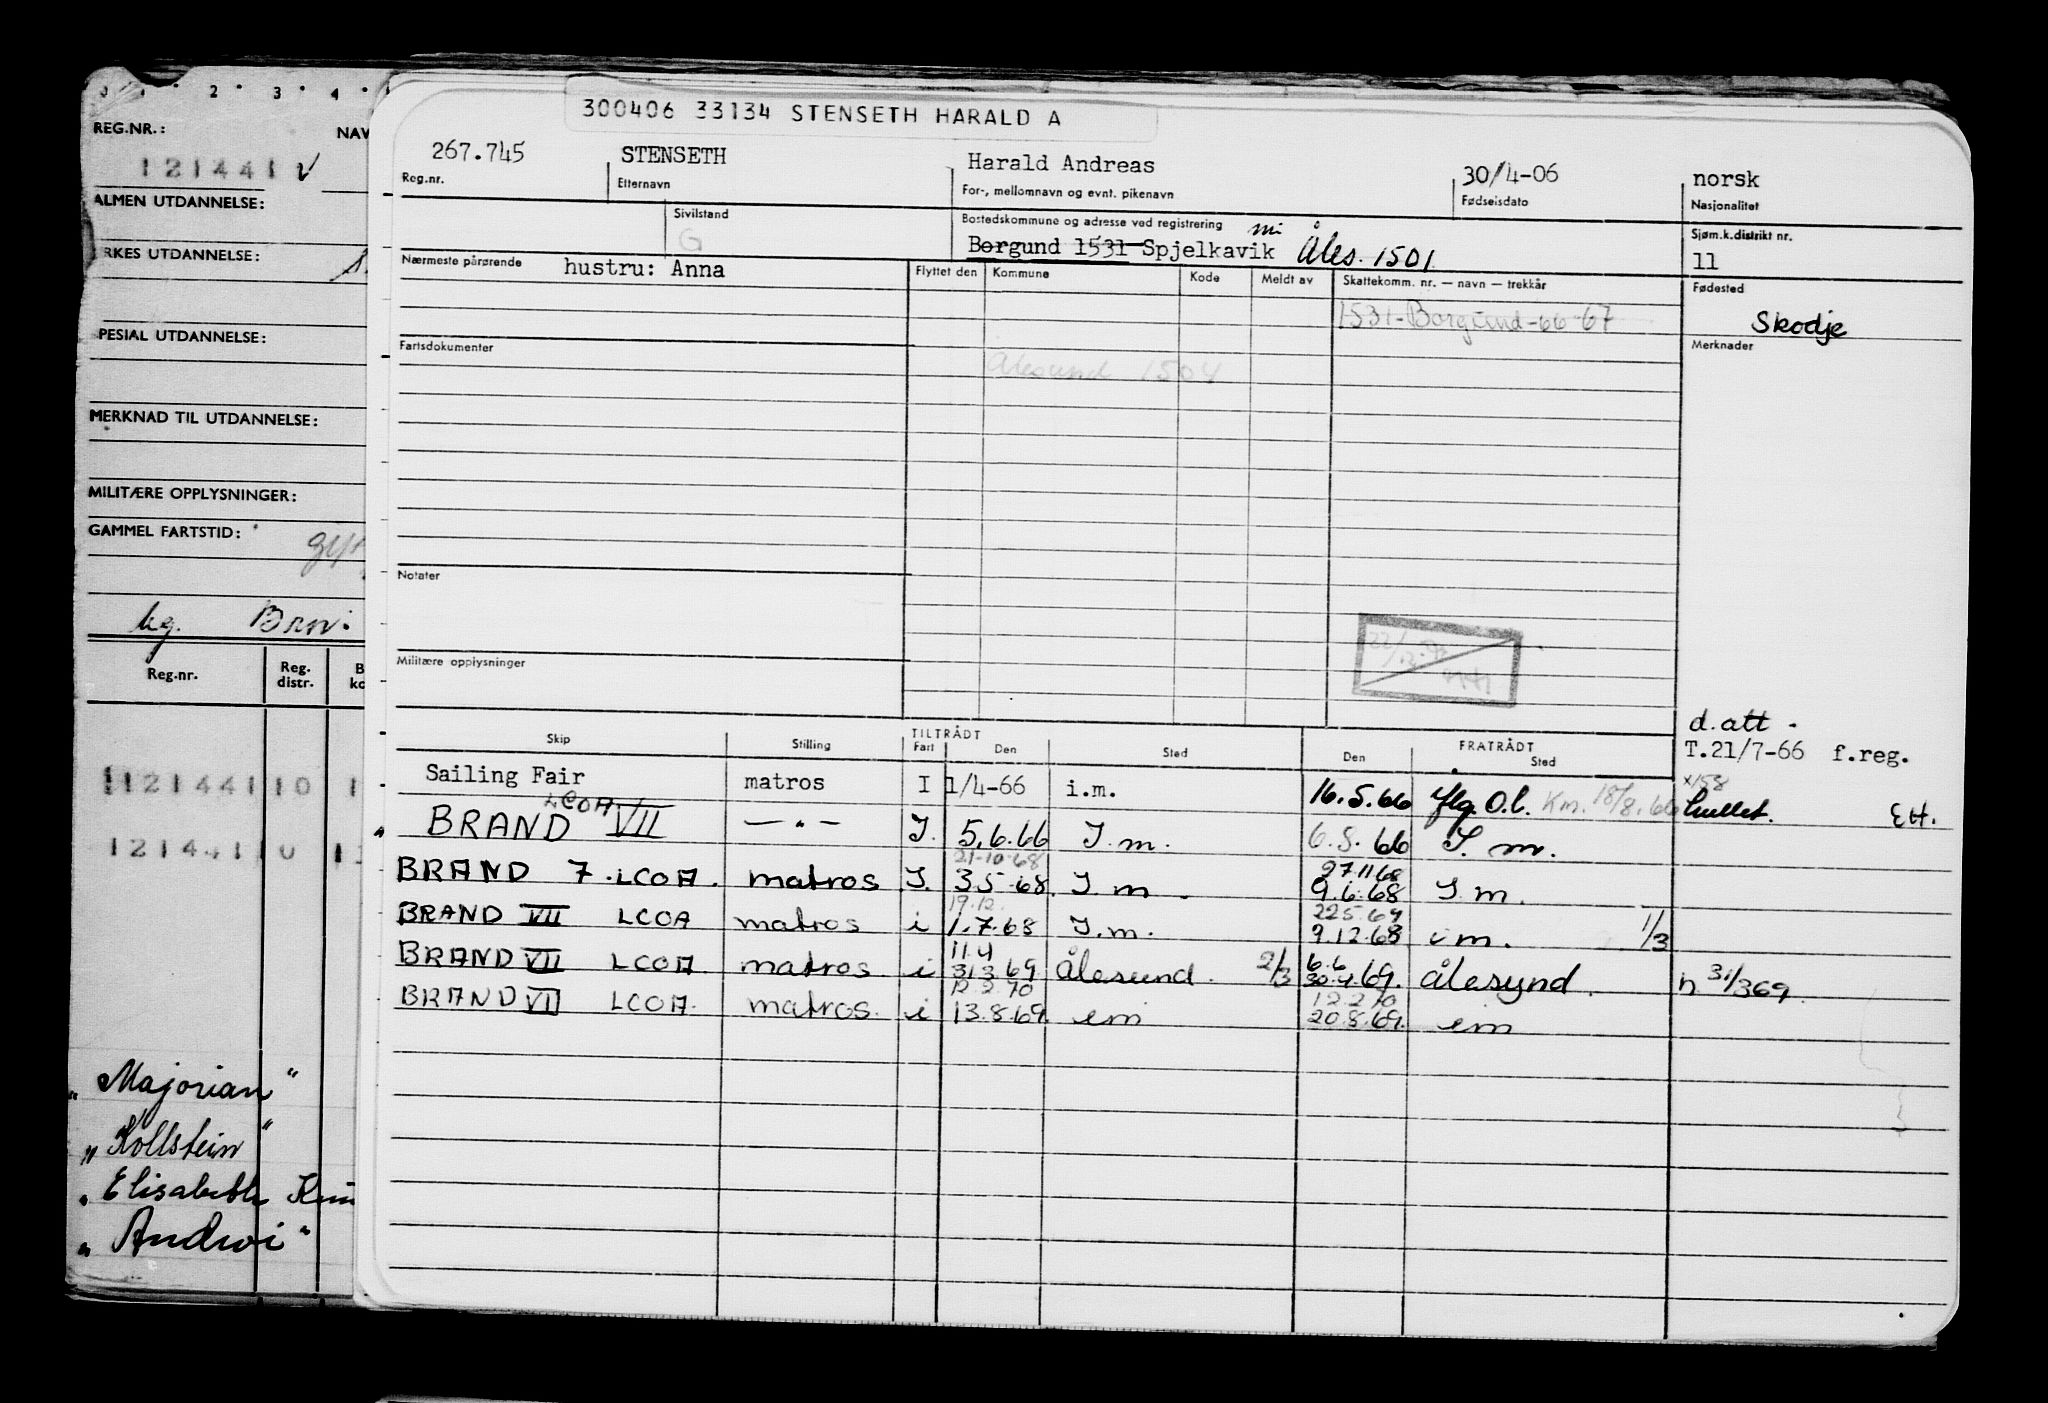 REG.NR.:
NAV
121441
ALMEN UTDANNELSE:
RKES UTDANNELSE:
PESIAL UTDANNELSE:
MERKNAD TIL UTDANNELSE:
MILITÆRE OPPLYSNINGER:
GAMMEL FARTSTID:
Reg.nr. Reg. distr. B ko
121441 10 1
121441 0 1
"Majorian"
"Kollstein"
"Elisabeth
300406 33134 STENSETH HARALD A
267.745 STENSETH Harald Andreas 30/4-06 norsk
Reg.nr. Etternavn For-, mellomnavn og evnt. pikenavn Fødselsdato Nasjonalitet
Sivilstand Bostedskommune og adresse ved registrering Sjøm.k.distrikt nr.
G Borgund 1531 Spjelkavik nu Åles. 1501 11
Nærmeste pårørende hustru: Anna Flyttet den Kommune Kode Meldt av Skattekomm. nr. — navn — trekkår Fødested
1531-Borgund-66-67 Skodje
Fartsdokumenter Merknader
Ålesund 1504
Notater
Militære opplysninger
d.att.
Skip Stilling TILTRÅDT Fart Den Sted Den FRATRÅDT Sted T.21/7-66 f.reg.
Sailing Fair matros I 1/4-66 i.m. 16.5.66 O.l. Km. 18/8.66 EH.
BRAND LCOA VII —"— I. 5.6.66 I.m. 6.8.66 I.m.
21-10-68 27.11.68
BRAND 7. LCOA. matros I. 3.5.68 I.m. 9.6.68 I.m.
19.12. 22.5.69
BRAND VII LCOA matros i 1.7.68 I.m. 9.12.68 im. 1/3
11.4 6.6
BRAND VII LCOA matros i 31.3.69 Ålesund. 2/3 30.4.69. Ålesund. n 31/369.
12.2.70 12.2.70
BRAND VII LCOA. matros. i 13.8.69. im 20.8.69. im